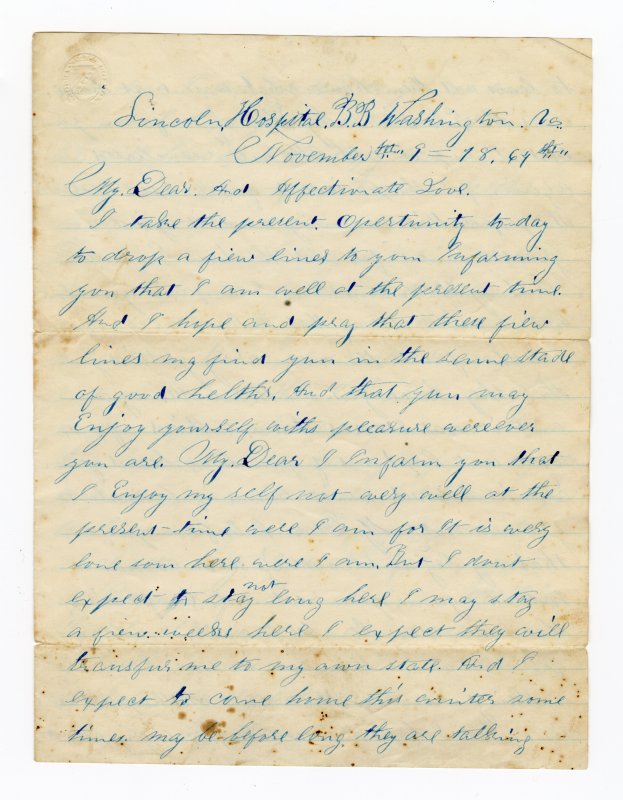 Lincoln, Hospital, B.B Washington. Va.
November th" 9 = 18. 64 th"
My. Dear. And Affectionate Love.
I take the present. Opertunity to-day
to drop a fiew lines to you Infarming
you that I am well at the present time.
And I hope and pray that these fiew
lines my find yun in the same stade
of good helths, And that yun may
Enjoy yourself withs pleasure wereever
you are. My. Dear I Infarm you that
I Enjoy my self not very well at the
present-time were I am for It is very
lone som here were I am, But I dont
expect to stay not long here I may stay
a fiew weeks here I expect they will
transfur me to my own state. And I
expect to come home this winter some
times may be before long. they are talking